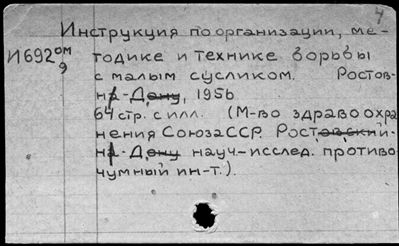 4
Инструкция по организации, ме-
И692ом тодике и технике борьбы
9 с малым сусликом. Ростов-
на-Дону, 1956
64 стр. с илл. (М-во здравоохра
нения Союза ССР. Ростовский-
на-Дону науч-исслед. противо
чумный ин-т.).